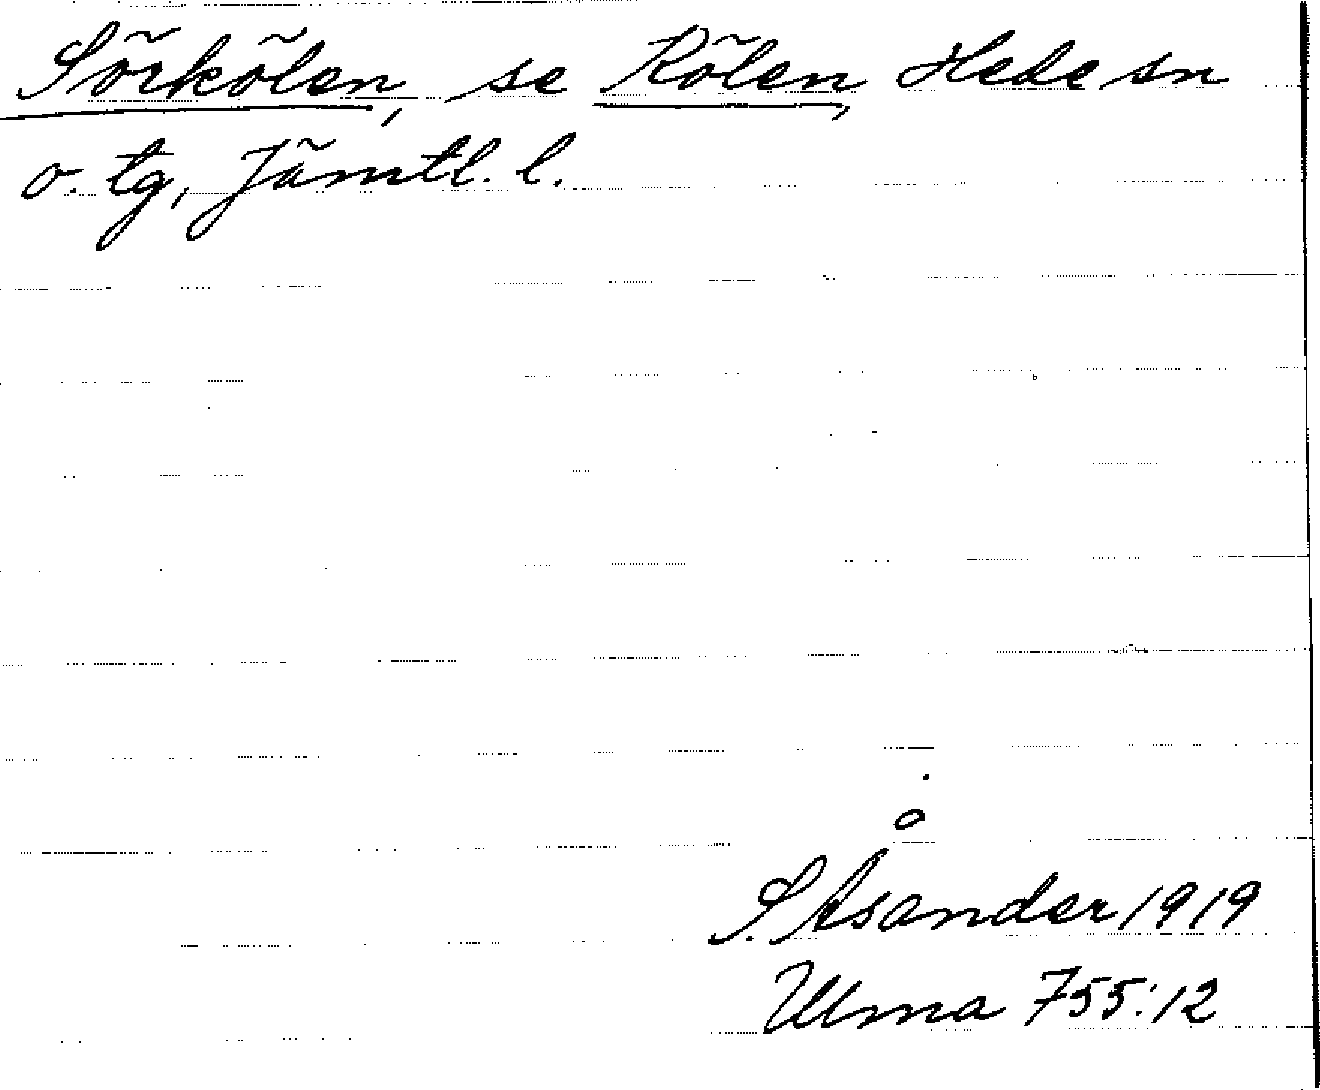 Sörkölen, se Kölen, Hede sn
o. tg, Jämtl. l.
S. Åsander 1919
Ulma 755:12